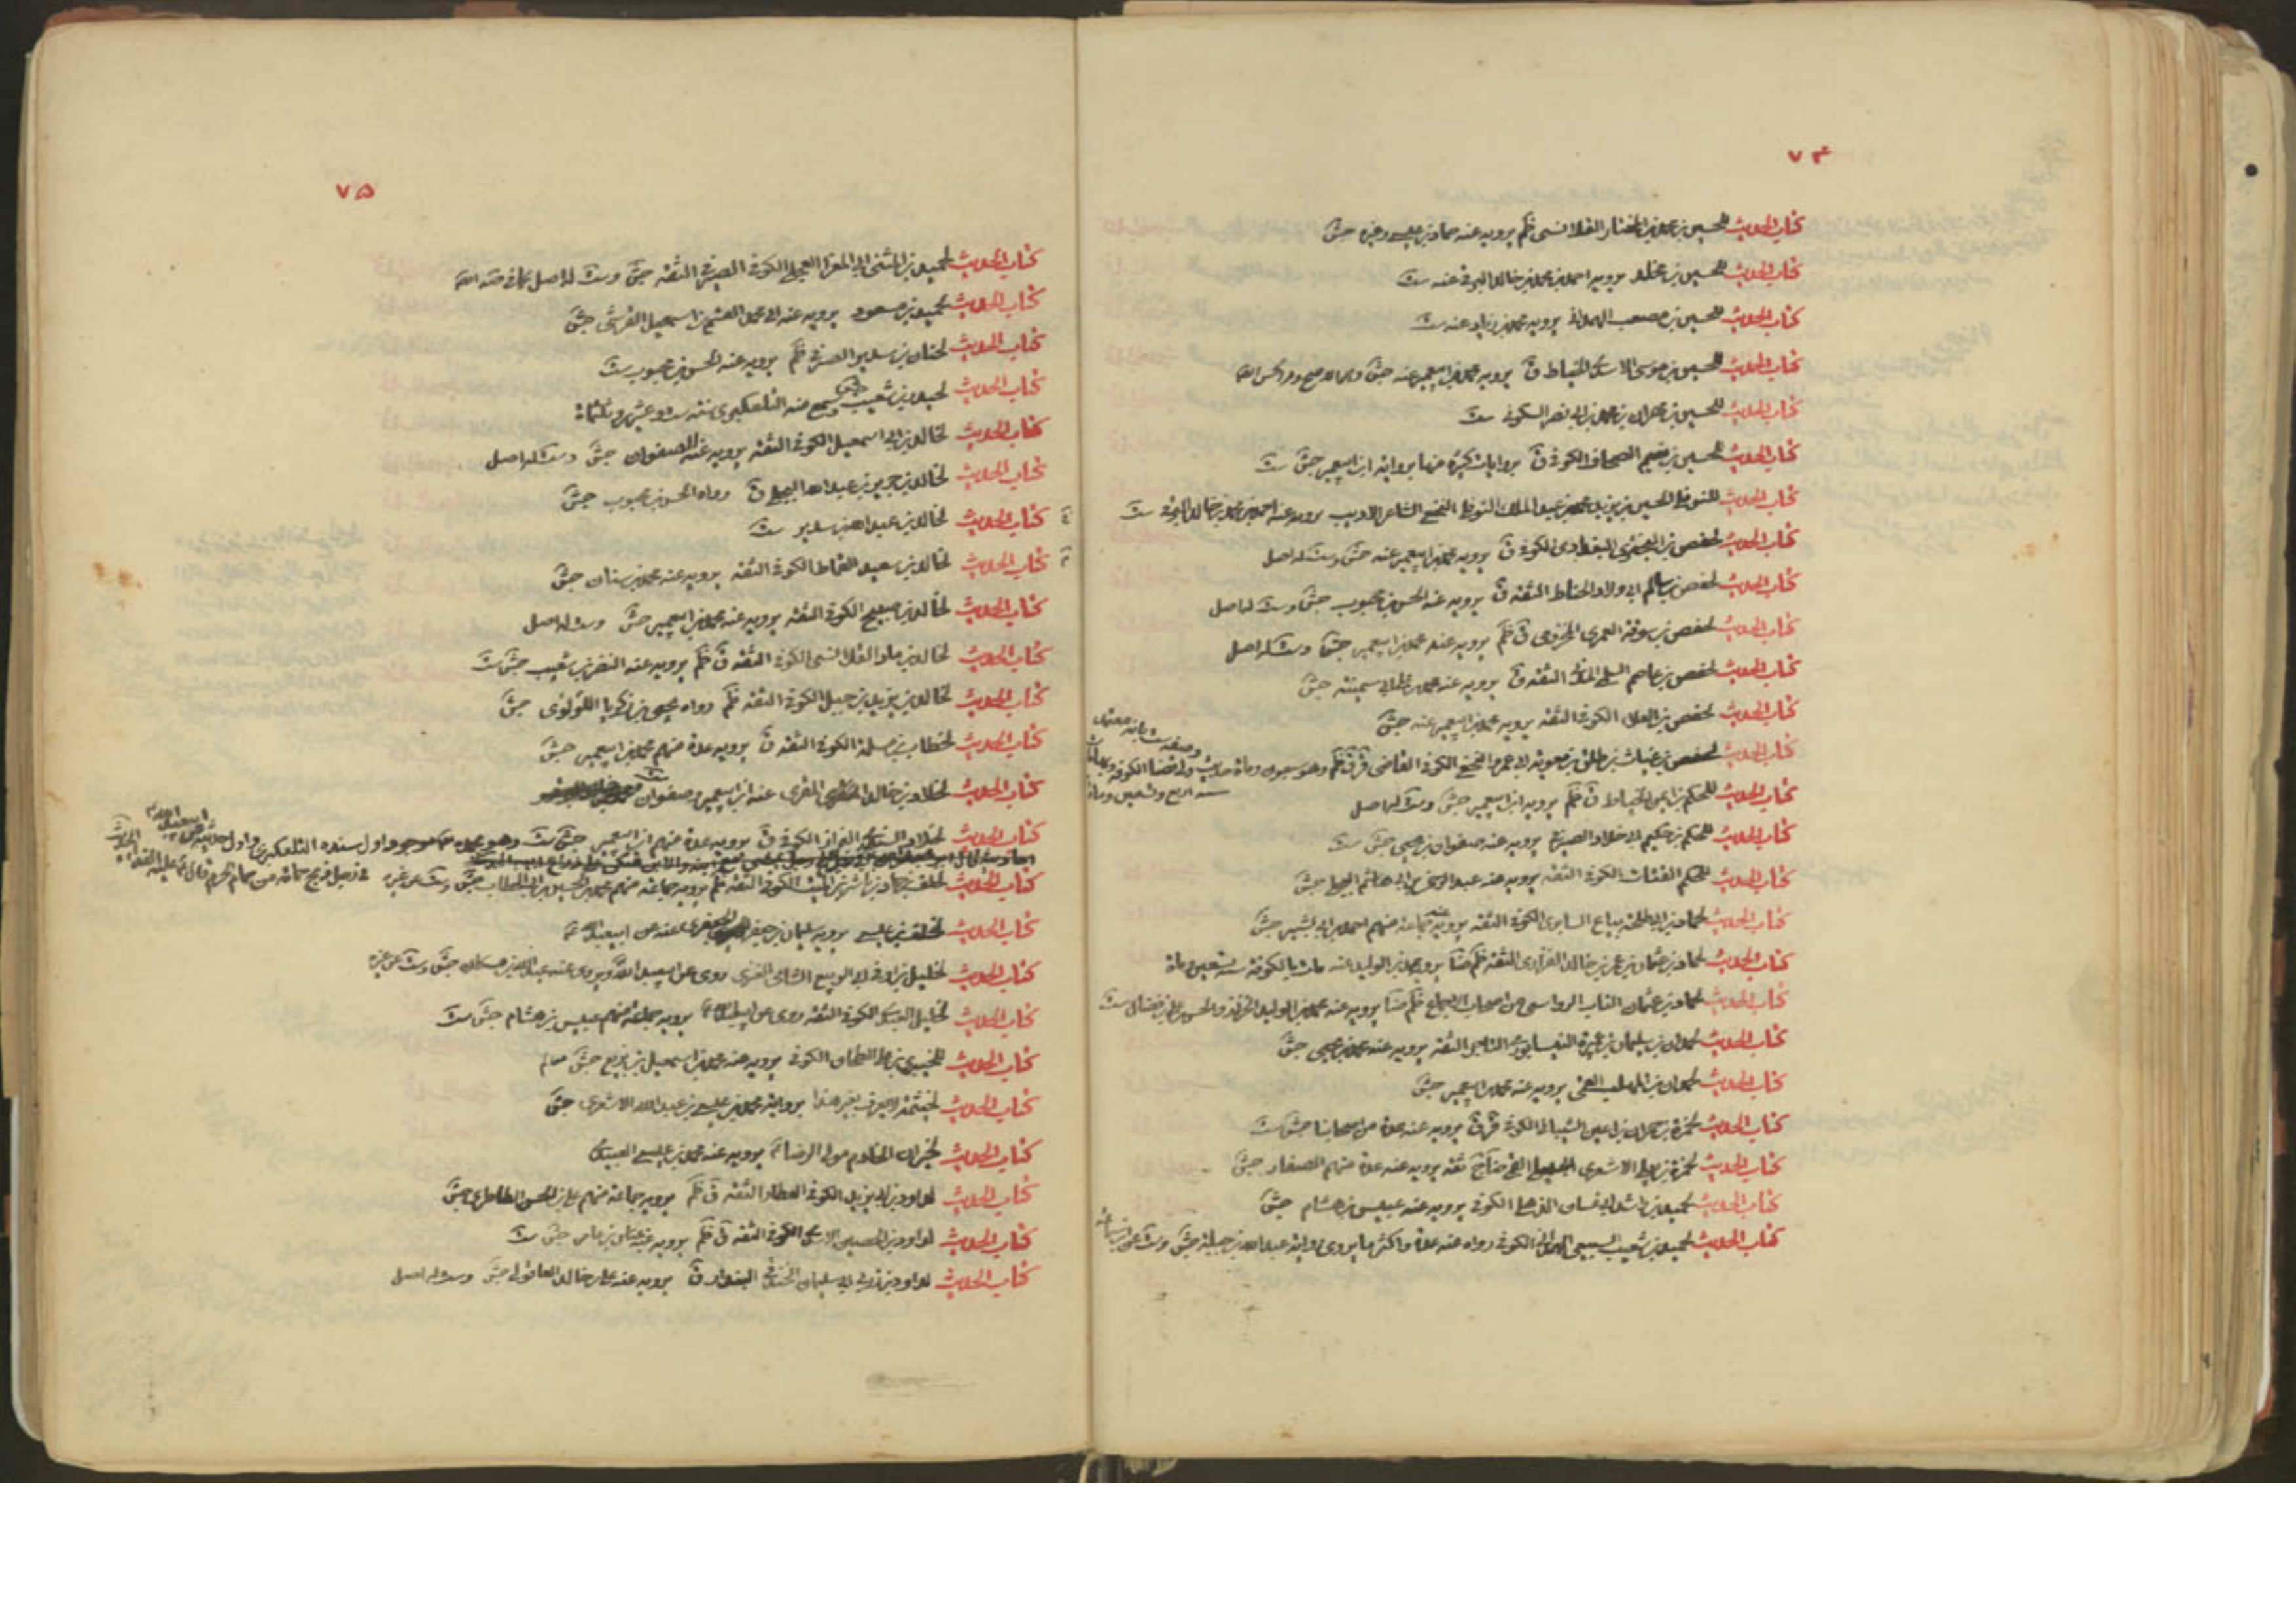 ٧٤
كتاب الحديث للحسين بن محمد بن المختار القلانسي ظم يرويه عنه حماد بن عيسى وغيره جش
كتاب الحديث للحسين بن مخلد يرويه احمد بن محمد بن خالد البرقي عنه ست
كتاب الحديث للحسين بن مصعب الهمداني يرويه محمد بن زياد عنه ست
كتاب الحديث للحسين بن موسى الاسدي الخياط ق يرويه محمد بن ابيعمير عنه جش
كتاب الحديث للحسين بن مهران بن محمد بن ابي نصر السكوني ست
كتاب الحديث للحسين بن نعيم الصحاف الكوفي ق بروايات كثيرة منها برواية ابن ابيعمير جش ست
كتاب الحديث للنوفلي الحسين بن يزيد بن محمد بن عبد الملك النوفلي النخعي الشاعر الاديب يرويه عنه احمد بن محمد بن خالد البرقي ست
كتاب الحديث لحفص بن البختري البغدادي الكوفي ق يرويه محمد بن ابيعمير عنه جش وست له اصل
كتاب الحديث لحفص بن سالم ابي ولاد الحناط الثقة ق يرويه عنه الحسن بن محبوب جش وست له اصل
كتاب الحديث لحفص بن سوقة العمري المخزومي ق ظم يرويه عنه محمد بن ابيعمير جش وست له اصل
كتاب الحديث لحفص بن عاصم السلمي المدني الثقة ق يرويه عنه محمد بن علي ابي سمينة جش
كتاب الحديث لحفص بن العلاء الكوفي الثقة يرويه محمد بن ابيعمير عنه جش
كتاب الحديث لحفص بن غياث بن طلق بن معوية ابي عمر النخعي الكوفي القاضي قر ق ظم وهو سبعون ومائة حديث ولي قضاء الكوفة ومات بها
سنة اربع وتسعين ومائة
كتاب الحديث للحكم بن ايمن الخياط ق ظم يرويه ابن ابيعمير جش وست له اصل
كتاب الحديث للحكم بن حكيم ابي خلاد الصيرفي يرويه عنه صفوان بن يحيى جش ست
كتاب الحديث للحكم القتات الكوفي الثقة يرويه عنه عبد الرحمن بن ابي هاشم البجلي جش
كتاب الحديث لحماد بن ابي طلحة بياع السابري الكوفي الثقة يرويه عنه جماعة منهم احمد بن ابي بشير جش
كتاب الحديث لحماد بن عثمان بن عمرو بن خالد الفزاري الثقة ظم ضا يرويه محمد بن الوليد عنه مات بالكوفة سنة تسعين ومائة
كتاب الحديث لحماد بن عثمان الناب الرواسي من اصحاب الاجماع ظم ضا يرويه عنه محمد بن الوليد الخزاز والحسن بن علي بن فضال ست
كتاب الحديث لحمدان بن سليمان بن عميرة النيسابوري التاجر الثقة يرويه عنه محمد بن يحيى جش
كتاب الحديث لحمدان بن المهلب القمي يرويه عنه محمد بن ابيعمير جش
كتاب الحديث لحمزة بن حمران بن اعين الشيباني الكوفي قر ق يرويه عنه عدة من اصحابنا جش ست
كتاب الحديث لحمزة بن يعلى الاشعري القمي ثقة يرويه عنه عدة منهم الصفار جش
كتاب الحديث لحميد بن راشد ابي غسان الذهلي الكوفي يرويه عنه عبيس بن هشام جش
كتاب الحديث لحميد بن شعيب السبيعي الهمداني الكوفي رواه عنه عدة واكثر ما يروى رواية عبد الله بن جبلة جش وست
٧٥
كتاب الحديث لحميد بن المثنى ابي المغرا العجلي الكوفي الصيرفي الثقة جش وست له اصل
كتاب الحديث لحميد بن مسعود يرويه عنه ابي محمد القسم بن اسمعيل القرشي جش
كتاب الحديث لحنان بن سدير الصيرفي ظم يرويه عنه الحسن بن محبوب ست
كتاب الحديث لحيدر بن شعيب سمع منه التلعكبري سنة ست وعشرين وثلثمائة
كتاب الحديث لخالد بن ابي اسمعيل الكوفي الثقة يرويه عنه صفوان جش وست له اصل
كتاب الحديث لخالد بن جرير بن عبد الله البجلي ق رواه الحسن بن محبوب جش
كتاب الحديث لخالد بن عبد الله بن سدير ست
كتاب الحديث لخالد بن سعيد القماط الكوفي الثقة يرويه عنه محمد بن سنان جش
كتاب الحديث لخالد بن صبيح الكوفي الثقة يرويه عنه محمد بن ابيعمير جش وست له اصل
كتاب الحديث لخالد بن ماد القلانسي الكوفي الثقة ق ظم يرويه عنه النضر بن شعيب جش ست
كتاب الحديث لخالد بن يزيد بن جبل الكوفي الثقة ظم رواه يحيى بن زكريا اللؤلؤي جش
كتاب الحديث لخطاب بن مسلمة الكوفي الثقة ق يرويه عدة منهم محمد بن ابيعمير جش
كتاب الحديث لخلاد بن خالد المقري عنه ابن ابيعمير وصفوان ست
كتاب الحديث لخلاد السندي البزاز الكوفي ق يرويه عدة منهم ابن ابيعمير جش ست وهو موجود اول سنده التلعكبري واول حديثه
كتاب الحديث لخلف بن حماد بن ناشر بن المسيب الكوفي الثقة ظم يرويه جماعة منهم محمد بن الحسين بن ابي الخطاب جش وست
كتاب الحديث لخلف بن عيسى يرويه سليمان بن جعفر الجعفري عنه عن ابيعبد الله
كتاب الحديث لخليل بن اوفى ابي الربيع الشامي العنزي روى عن ابيعبد الله ويروي عنه عبد الله بن مسكان جش وست
كتاب الحديث لخليل العبدي الكوفي الثقة روى عن ابيعبد الله يرويه جماعة منهم عبيس بن هشام جش ست
كتاب الحديث للخيبري بن علي الطحان الكوفي يرويه عنه محمد بن اسمعيل بن بزيع جش
كتاب الحديث لخيثمة لا يعرف بغير هذا برواية محمد بن عيسى بن عبد الله الاشعري جش
كتاب الحديث لخيران الخادم مولى الرضا يرويه عنه محمد بن عيسى العبيدي
كتاب الحديث لداود بن ابي يزيد الكوفي العطار الثقة ق ظم يرويه جماعة منهم علي بن الحسن الطاطري جش
كتاب الحديث لداود بن الحصين الاسدي الكوفي الثقة ق ظم يرويه عنه عباس بن عامر جش ست
كتاب الحديث لداود بن زربي ابي سليمان الخندقي البندار ق يرويه عنه علي بن خالد العاقولي جش وست له اصل